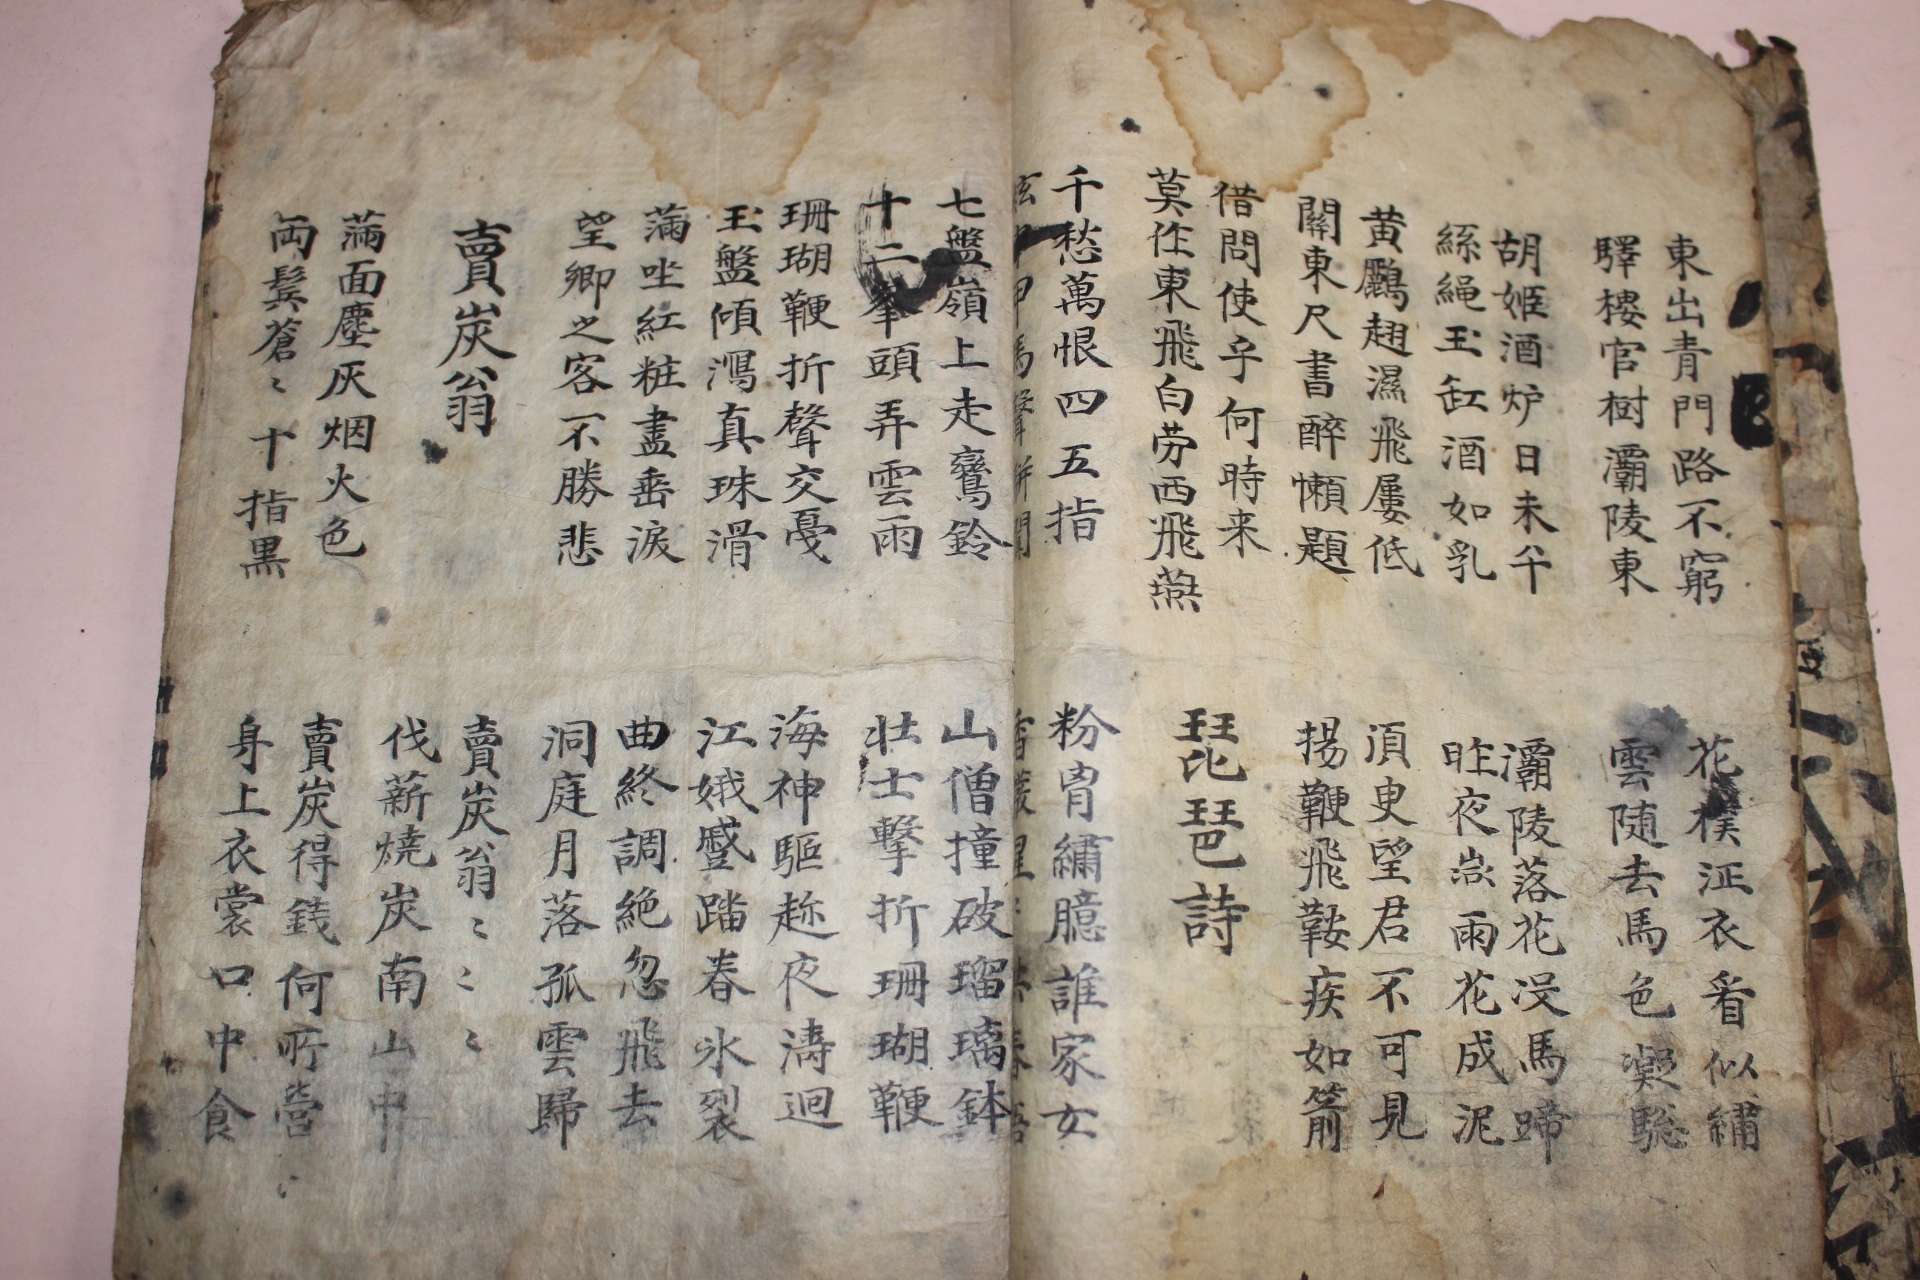 東出青門路不窮
驛樓官樹灞陵東
花撲征衣看似繡
雲随去馬色凝驄
胡姬酒炉日未午
絲繩玉缸酒如乳
灞陵落花沒馬蹄
昨夜微雨花成泥
黄鸝翅濕飛屢低
關東尺書醉懶題
須臾望君不可見
揚鞭飛鞚疾如箭
借問使乎何時来
莫作東飛白劳西飛燕
琵琶詩
千愁萬恨四五指
絃中甲馬聲駢闐
粉胷繡臆誰家女
香撥星星共春語
七盤嶺上走鸞鈴
十二峯頭弄雲雨
山僧撞破瑠璃鉢
壮士擊折珊瑚鞭
珊瑚鞭折聲交戛
玉盤傾瀉真珠滑
海神驅趂夜濤迴
江娥蹙踏春氷裂
滿坐紅粧盡垂淚
望鄉之客不勝悲
曲終調絶忽飛去
洞庭月落孤雲歸
賣炭翁
賣炭翁〻〻〻
伐薪燒炭南山中
滿面塵灰烟火色
両鬂蒼〻十指黒
賣炭得錢何所營
身上衣裳口中食